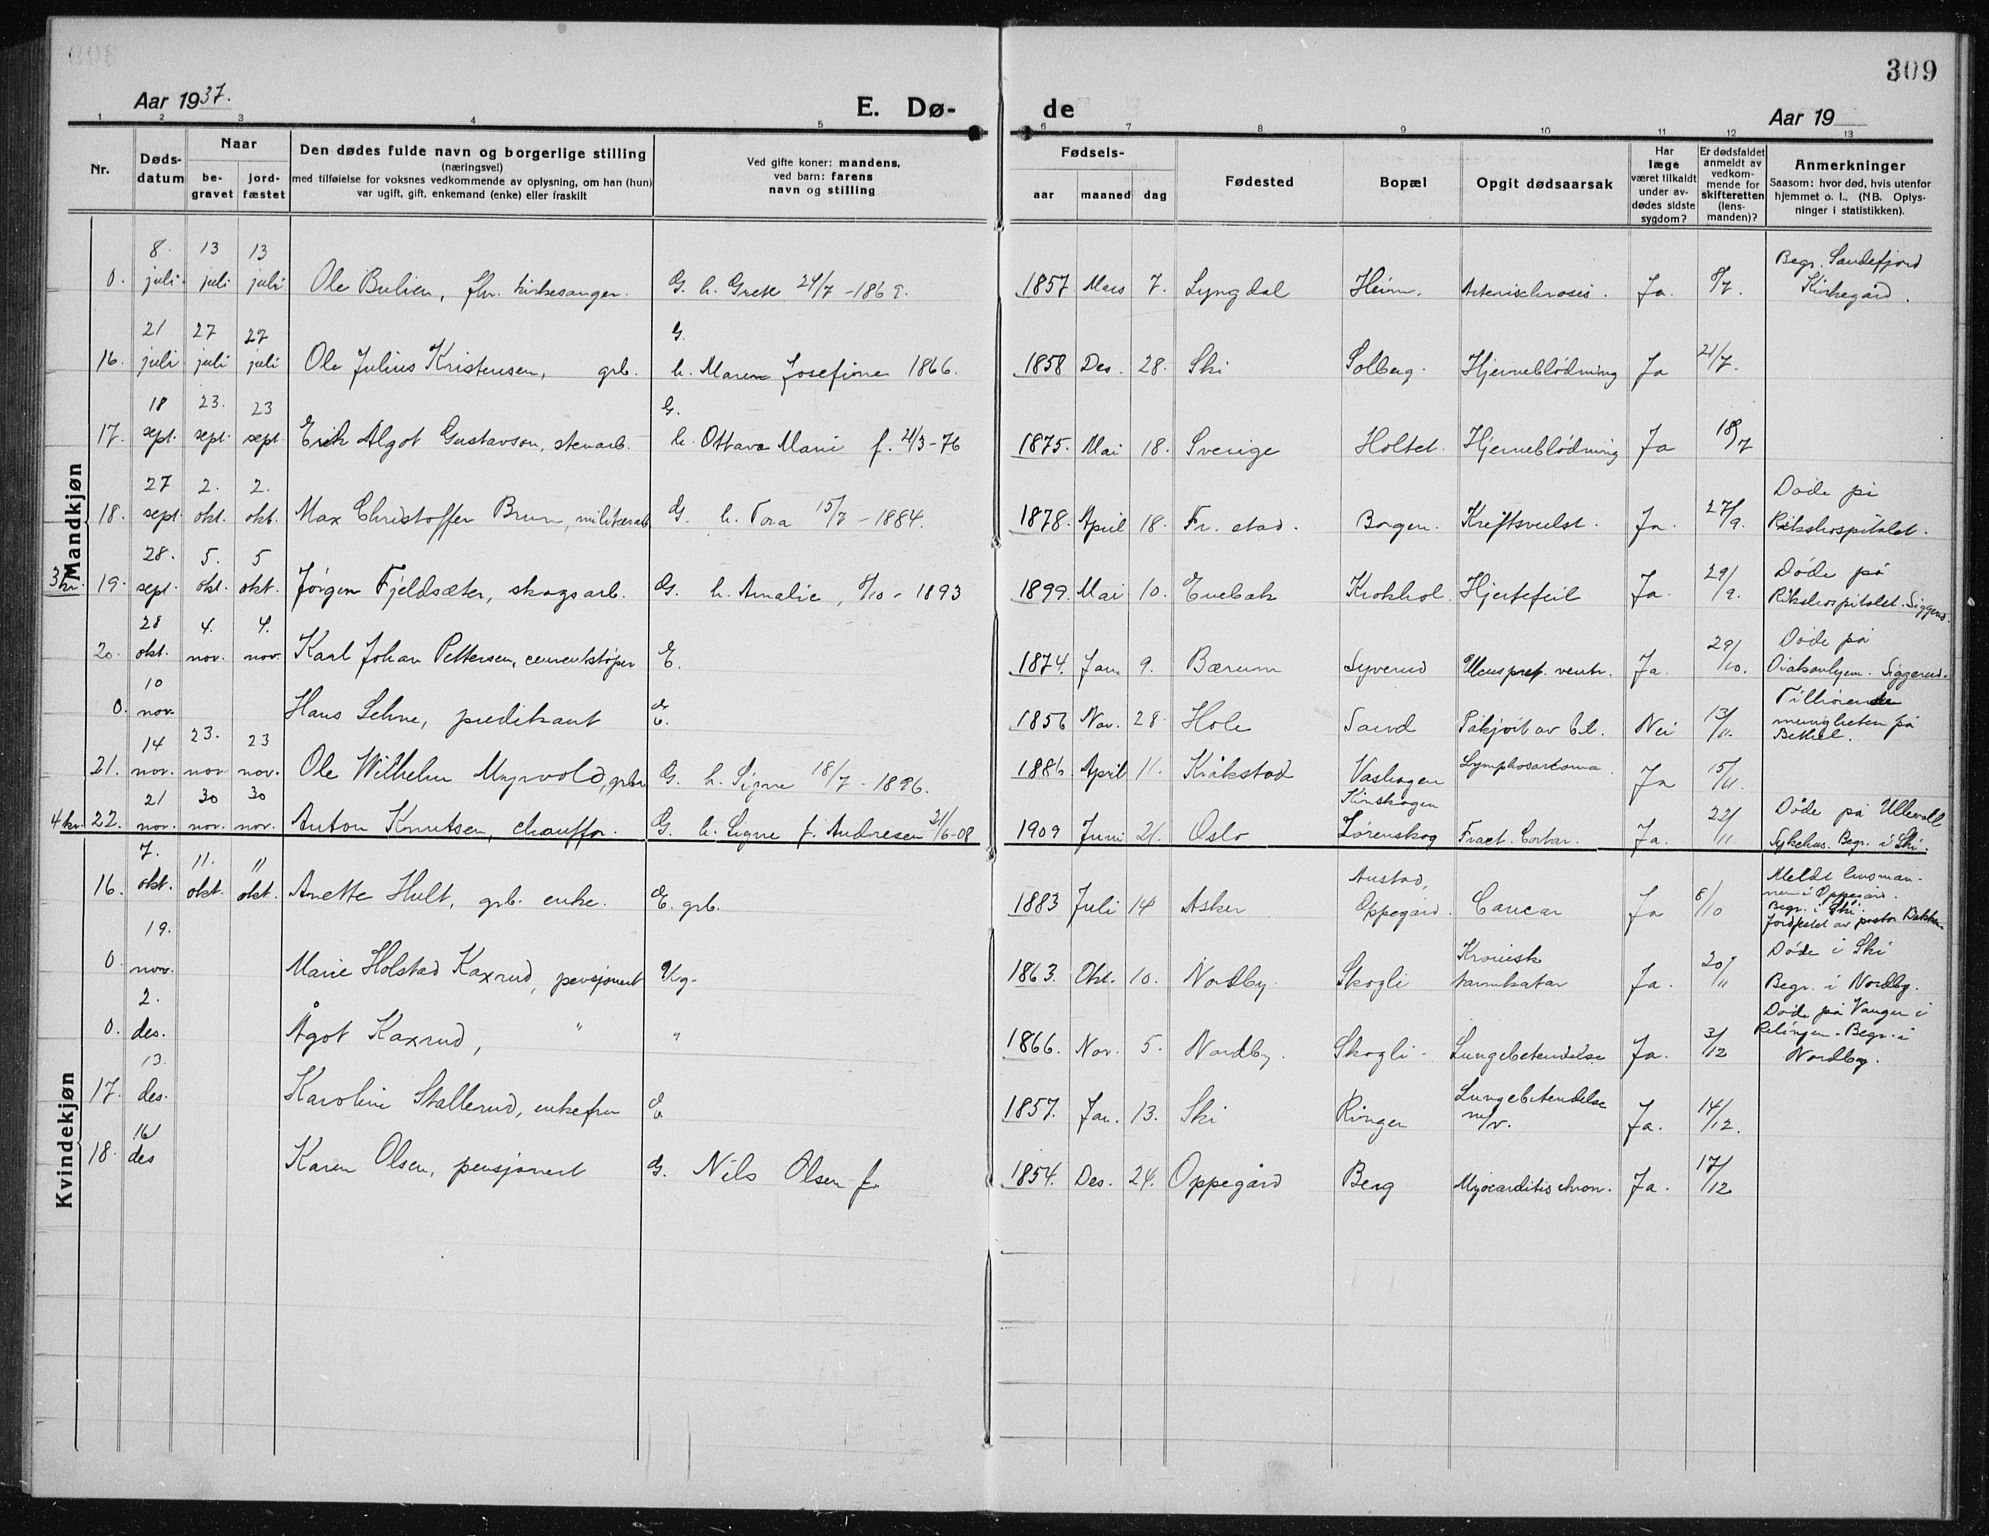 309
Aar 1937.
E. Dø-
de
Aar 19
1 2 3 4 5 6 7 8 9 10 11 12 13
Nr.
Døds-
datum
Naar
be-
gravet
jord-
fæstet
Den dødes fulde navn og borgerlige stilling
(næringsvei)
med tilføielse for voksnes vedkommende av oplysning, om han (hun)
var ugift, gift, enkemand (enke) eller fraskilt
Ved gifte koner: mandens,
ved barn: farens
navn og stilling
Fødsels-
aar maaned dag
Fødested
Bopæl
Opgit dødsaarsak
Har
læge
været tilkaldt
under av-
dødes sidste
sygdom?
Er dødsfaldet
anmeldt av
vedkom-
mende for
skifteretten
(lens-
manden)?
Anmerkninger
Saasom: hvor død, hvis utenfor
hjemmet o. l., (NB. Oplys-
ninger i statistikken).
Mandkjøn
0. 8. juli. 13 juli 13 juli Ole Bulien, fhv. kirkesanger. G. h. Grete 24/7 - 1869. 1857. Mars 7. Lyngdal Heim. Ja. 8/7. Begr. Sandefjord
Kirkegård.
16. 21 juli 27 juli 27 juli Ole Julius Kristensen, grb. G.
h. Maren Josefine 1866. 1858 Des. 28. Ski Solberg. Hjerneblødning Ja 21/7.
17. 18 sept. 23. sept. 23 sept. Erik Algot Gustavson, stenarb. G.
h. Ottava Marie f. 21/3-76 1875. Mai 18. Sverige Holtet. Hjerneblødning Ja 18/7
18. 27 sept. 2. okt. 2. okt. Max Christoffer Brun, militærarb. G. h. Tora 15/7 - 1884. 1878. April 18. Fr. stad. Borgen. Kreftsvulst. Ja. 27/9. Døde på
Rikshospitalet.
3 kr. 19. 28. sept. 5. okt. 5 okt. Jørgen Fjeldsæter, skogsarb. G. h. Amalie, 8/10 - 1893 1899. Mai 10. Enebak Krokhol. Hjertefeil Ja. 29/9. Døde på
Rikshospitalet. Siggerud.
20. 28 okt. 4. nov. 4. nov. Karl Johan Pettersen, cementstøper E. 1874. Jan. 9. Bærum Syverud Ulcus perf. ventr. Ja. 29/10. Døde på
Diakonhjem. Siggerud.
0. 10 nov. Hans Sehne, predikant E. 1856 Nov. 28. Hole Sand Påkjørt av bil. Nei 13/11. Tilhørende
menigheten på
Bethel.
21. 14 nov. 23. nov 23 nov. Ole Wilhelm Myrvold, grbr. G. h. Signe 18/7 - 1896. 1886 April 11. Kråkstad Vashagen
Kinskogen Lymphosarcoma. Ja 15/11.
4 kr. 22. 21 nov. 30 nov. 30 nov. Anton Knutsen, chauffør. G. h. Signe f. Andresen 21/6-08 1909 Juni 21. Oslo Lørenskog Fract. Ja. 22/11 Døde på Ullevoll
Sykehus. Begr. i Ski.
Kvindekjøn
16. 7. okt. 11. okt. 11 okt. Anette Hult, grb. enke. E. grb. 1883 Juli 14 Asker Austad,
Oppegård. Cancer Ja 8/10 Meldt lensman-
nen i Oppegård.
Begr. i Ski.
Jordfestet av pastor
0. 19. nov. Marie Holstad Kaxrud, pensjonert Ug. 1863. Okt. 10. Nordby. Skogli Kronisk
tarmkatar Ja. 20/11 Døde i Ski
Begr. i Nordby.
0. 2. des. Ågot Kaxrud, " " 1866. Nov. 5. Nordby. Skogli. Lungebetendelse Ja. 3/12 Døde på Vangen i
Relingen. Begr. i
Nordby.
17. 13. des. Karoline Skallerud, enkefru E 1857. Jan. 13. Ski Ringen Lungebetendelse
m/v. Ja. 14/12.
18. 16 des Karen Olsen, pensjonert G. Nils Olsen f. 1854. Des. 24. Oppegård Berg Myocarditis chron. Ja. 17/12